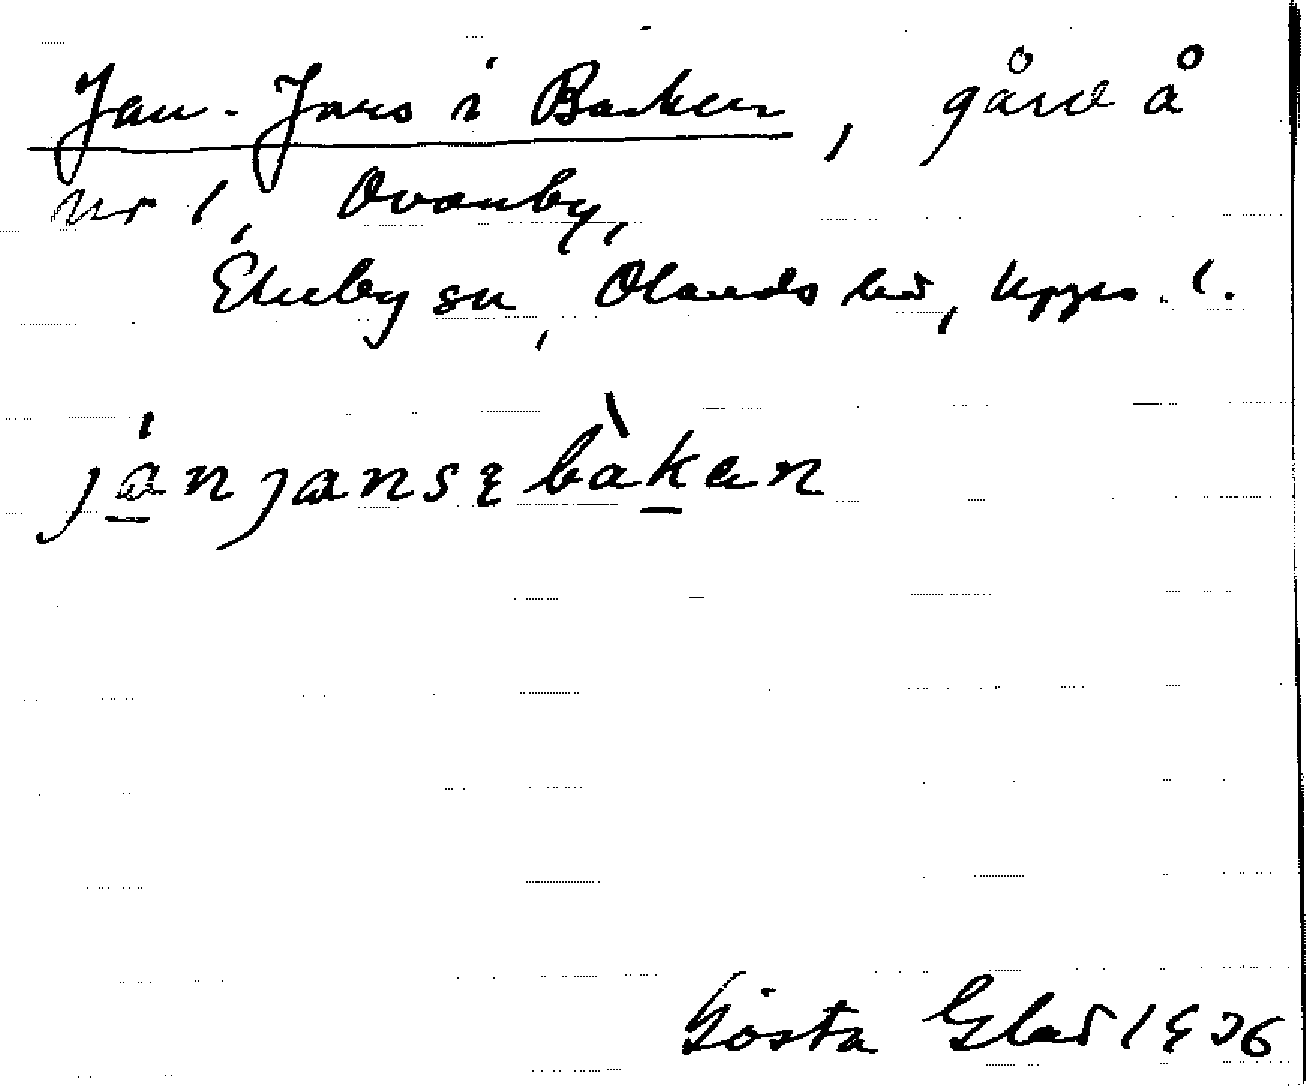 Jan-Jans i Backen, gård å
nr 1, Ovanby,
Ekeby sn, Olands hd, Upps. l.
jánjansębàkan
Gösta Glad 1936